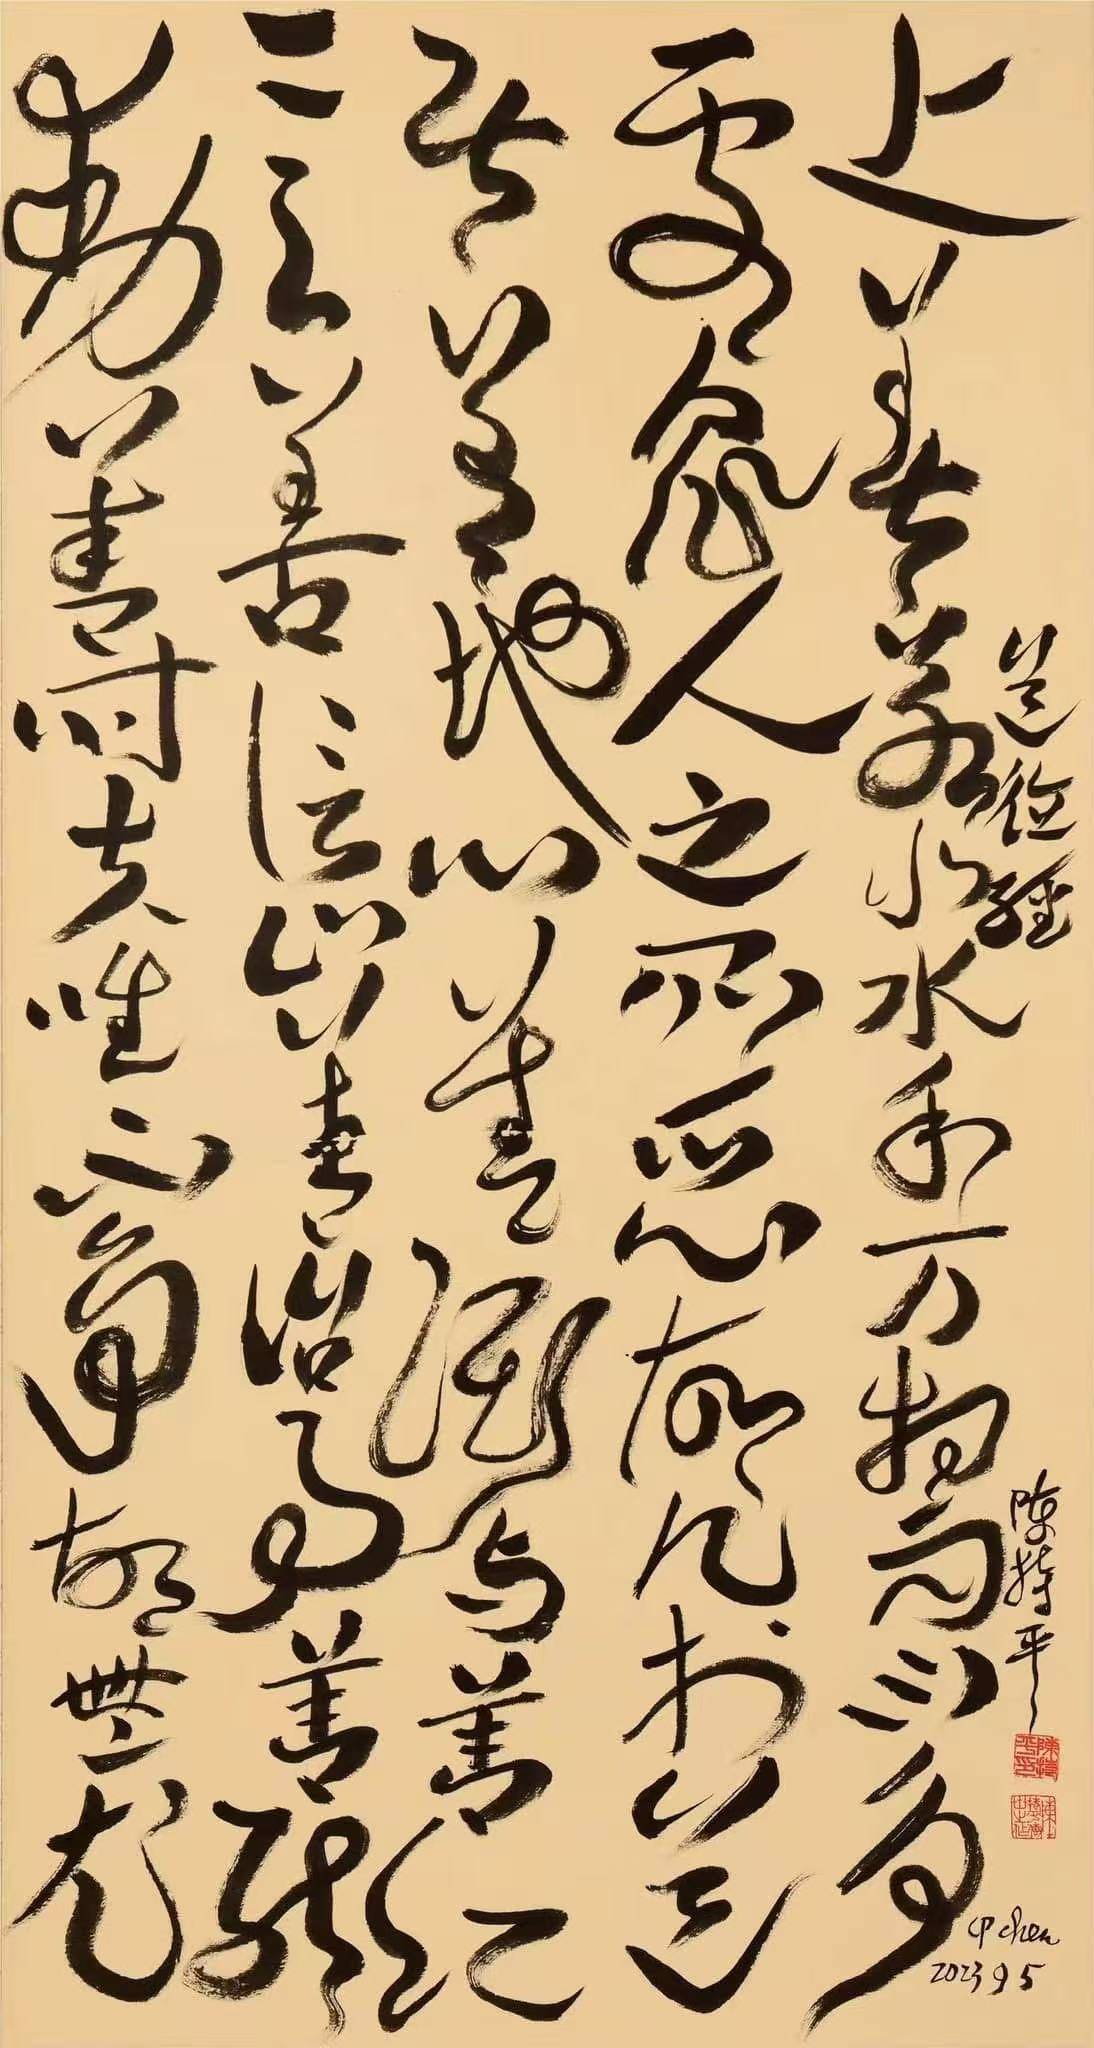 上善若水水利万物而不争
處衆人之所惡故几於道
居善地心善淵与善仁
言善信正善治事善能
動善时夫唯不争故無尤
道德經
陳持平
CP chen
2023 9 5